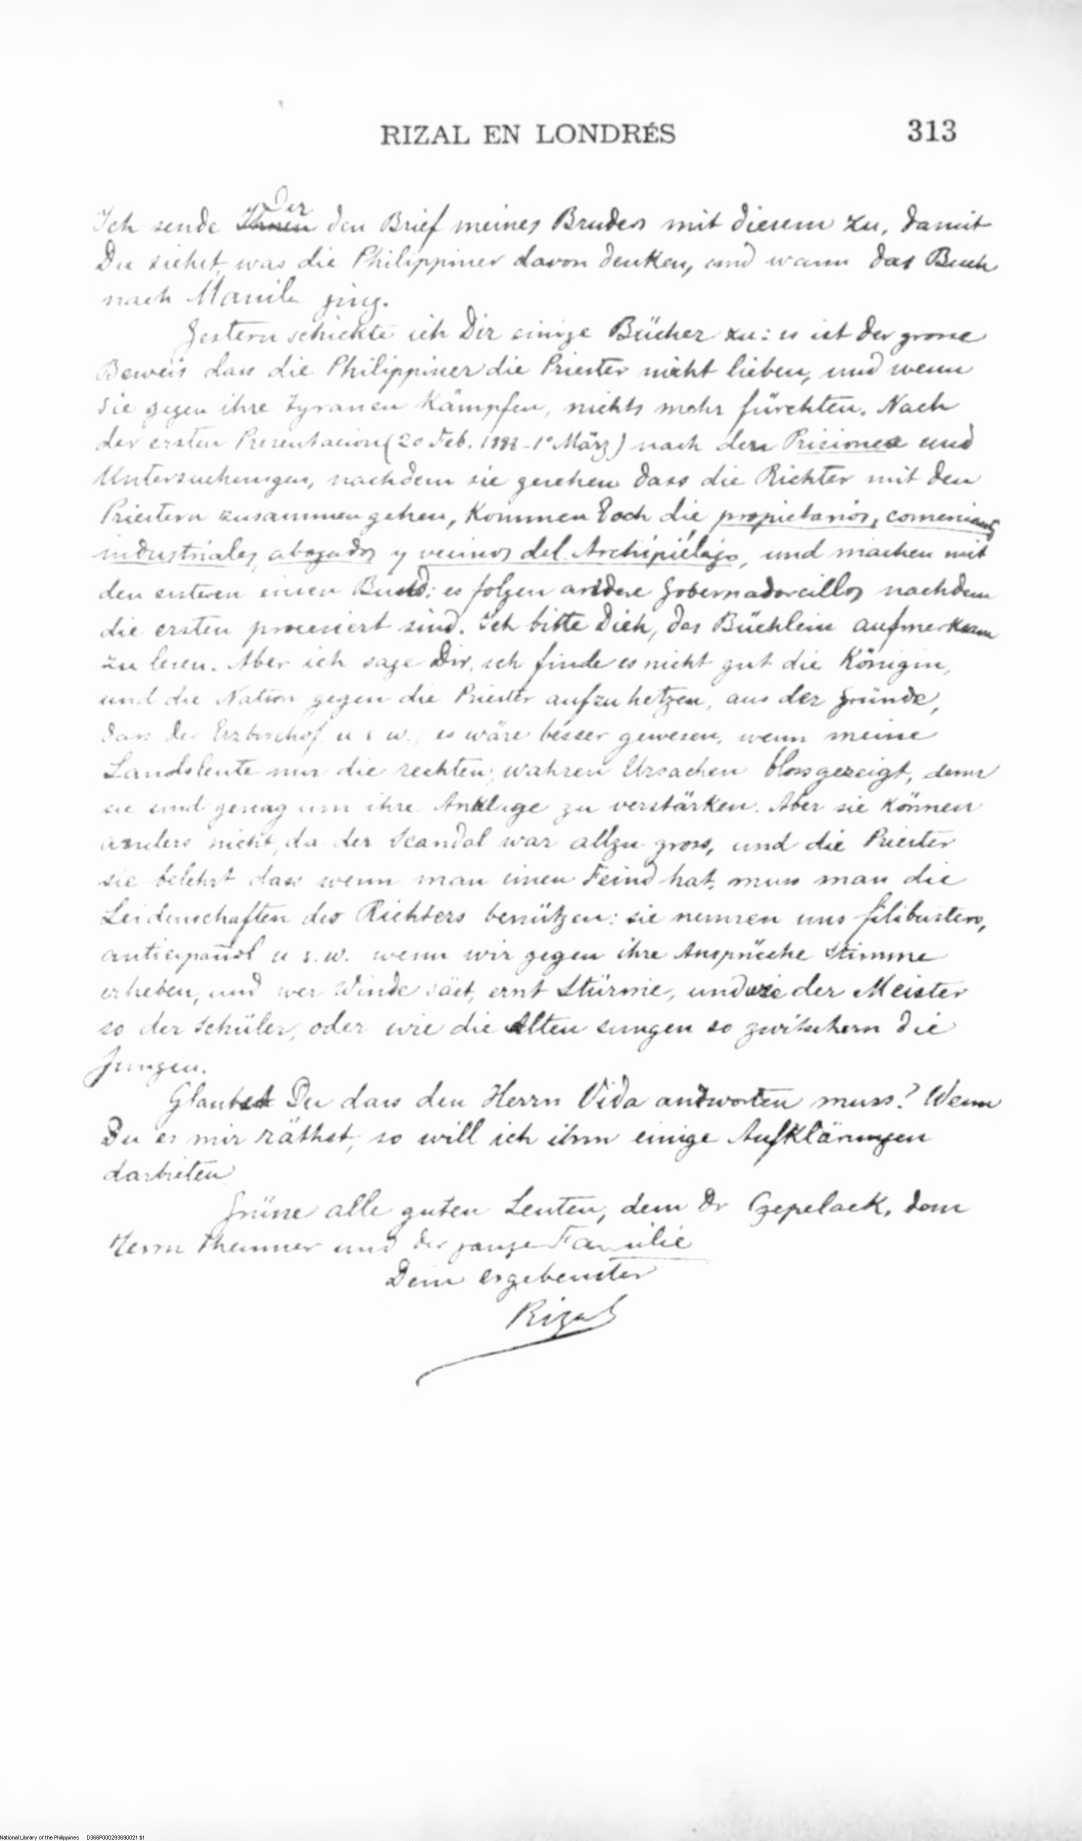 RIZAL EN LONDRÉS 313
Dir
Ich sende Ihnen den Brief meines Bruders mit diesem zu, damit
Du siehst, was die Philippiner davon denken, und wann das Buch
nach Manila ging.
Gestern schickte ich Dir einige Bücher zu: es ist der grosse
Beweis dass die Philippiner die Priester nicht lieben, und wenn
sie gegen ihre Tyranen kämpfen, nichts mehr fürchten. Nach
der ersten Presentacion (20 Feb. 1888 - 1º März) nach den Prisiones und
Untersuchungen, nachdem sie gesehen dass die Richter mit den
Priestern zusammen gehen, kommen doch die propietarios, comerciantes
industriales, abogados y vecinos del Archipiélago, und machen mit
den ersteren einen Bund: es folgen andere Gobernadorcillos nachdem
die ersten processiert sind. Ich bitte Dich, das Büchlein aufmerksam
zu lesen. Aber ich sage Dir, ich finde es nicht gut die Königin,
und die Nation gegen die Priester aufzuhetzen, aus der Gründe,
dass der Erzbischof u s w., es wäre besser gewesen, wenn meine
Landsleute nur die rechten, wahren Ursachen blossgezeigt, denn
sie sind genug um ihre Anklage zu verstärken. Aber sie können
anders nicht, da der Scandal war allzu gross, und die Priester
sie belehrt dass wenn man einen Feind hat, muss man die
Leidenschaften des Richters benützen: sie nennen uns filibusters,
antiespañol u s.w. wenn wir gegen ihre Ansprüche Stimme
erheben, und wer Winde säet, ernt Stürme, und wie der Meister
so der Schüler, oder wie die Alten sungen so zwitschern die
Jungen.
Glaubst Du dass den Herrn Vida andworten muss? Wenn
Du es mir räthst, so will ich ihm einige Aufklärungen
darbieten
Grüsse alle guten Leuten, dem Dr Czepelack, dem
Herrn und der ganze Familie
Dein ergebenster
Rizal
National Library of the Philippines